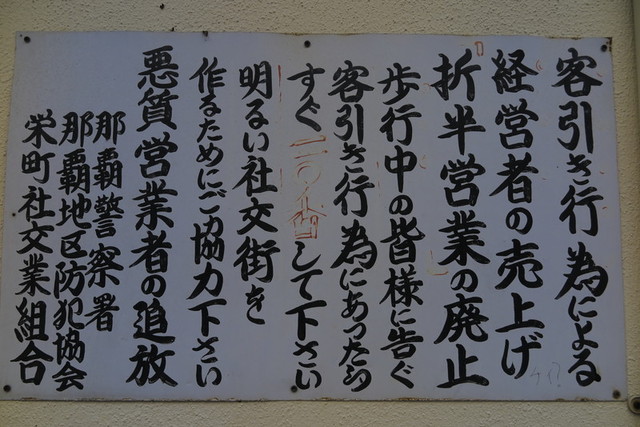 客引き行為による
経営者の売上げ
折半営業の廃止
歩行中の皆様に告ぐ
客引き行為にあったら
すぐ一一〇番して下さい
明るい社交街を
作るためにご協力下さい
悪質営業者の追放
那覇警察署
那覇地区防犯協会
栄町社交業組合